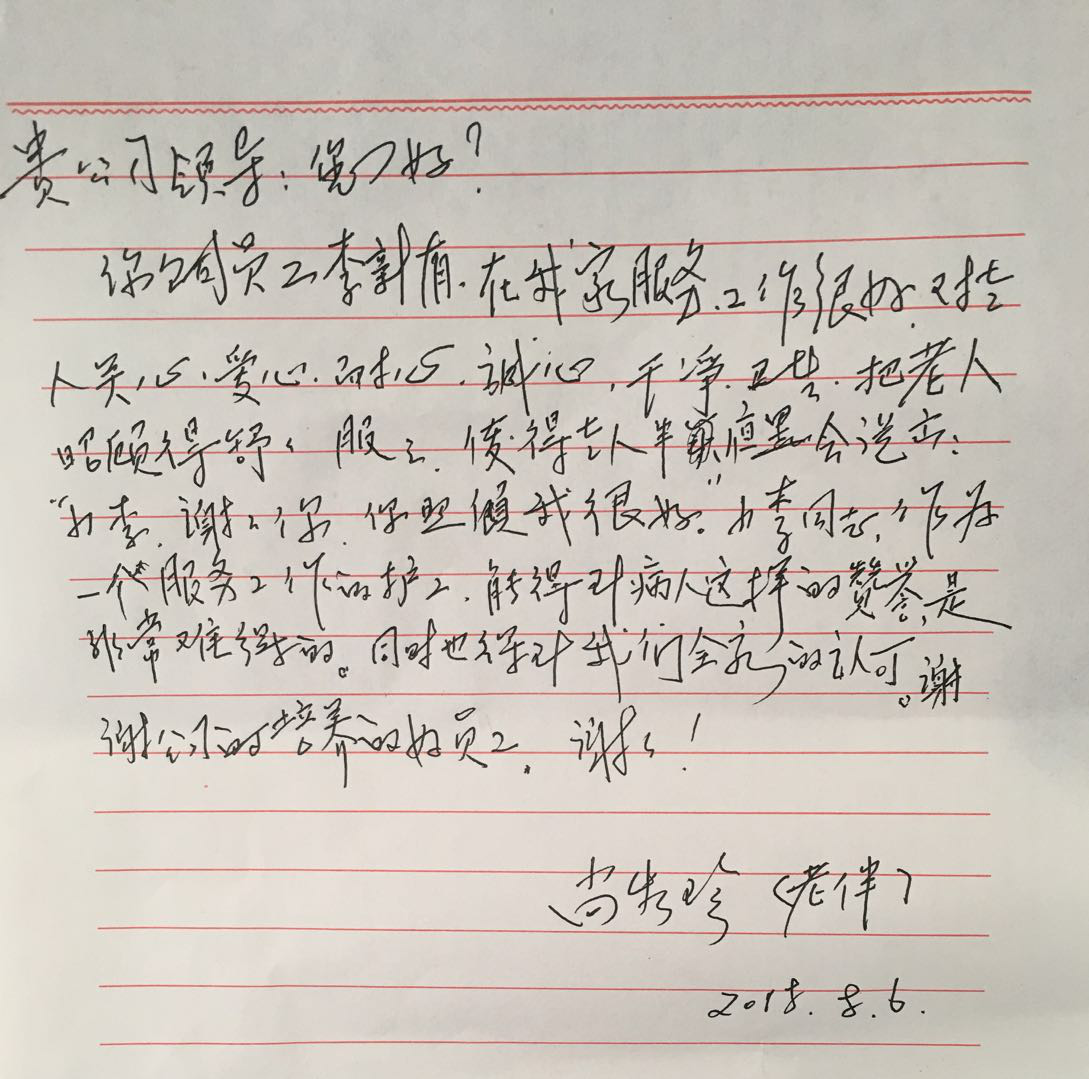 贵公司领导：您们好？
你公司员工李新有.在我家服务.工作很好.对老
人关心.爱心.耐心.誠心，干净.卫生.把老人
照顾得舒々服々.使得老人半癫痴呆会说出：
“小李.谢々你.你照顾我很好。”小李同志，作为
一个服务工作的护工.能得到病人这样的赞誉，是
非常难得的。同时也得到我们全家的认可。谢
谢公司的培养的好员工.谢々！
尚 珍（老伴）
2018.8.6.